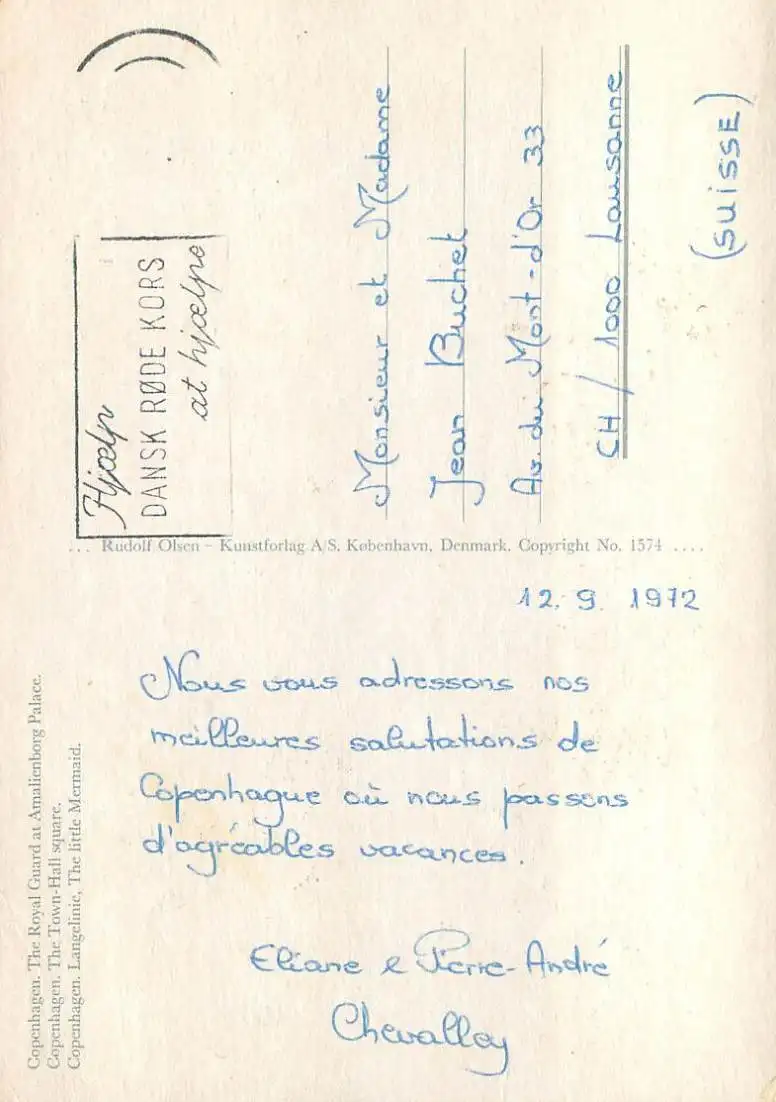 Hjælp
DANSK RØDE KORS
at hjælpe
Monsieur et Madame
Jean Buchet
Av. du Mont-d'Or 33
CH / 1000 Lausanne
(SUISSE)
... Rudolf Olsen – Kunstforlag A/S. København, Denmark. Copyright No. 1574 ....
12. 9. 1972
Nous vous adressons nos
meilleures salutations de
Copenhague où nous passons
d'agréables vacances.
Eliane e Pierre-André
Chevalley
Copenhagen. The Royal Guard at Amalienborg Palace.
Copenhagen. The Town-Hall square.
Copenhagen. Langelinie, The little Mermaid.